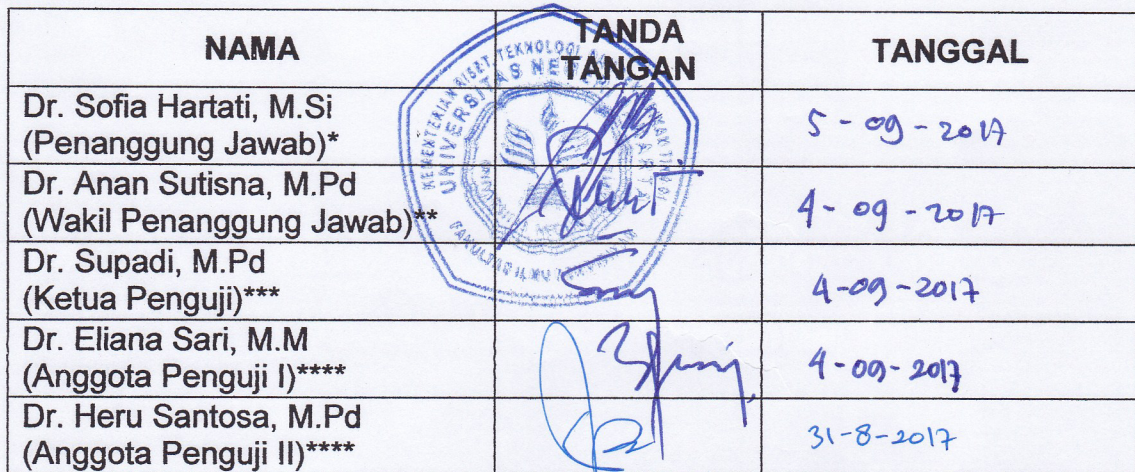 NAMA
TANDA
TANGAN
TANGGAL
Dr. Sofia Hartati, M.Si
(Penanggung Jawab)*
5-09-2017
Dr. Anan Sutisna, M.Pd
(Wakil Penanggung Jawab)**
4-09-2017
Dr. Supadi, M.Pd
(Ketua Penguji)***
4-09-2017
Dr. Eliana Sari, M.M
(Anggota Penguji I)****
4-09-2017
Dr. Heru Santosa, M.Pd
(Anggota Penguji II)****
31-8-2017
KEMENTERIAN RISET TEKNOLOGI
UNIVERSITAS
FAKULTAS ILMU